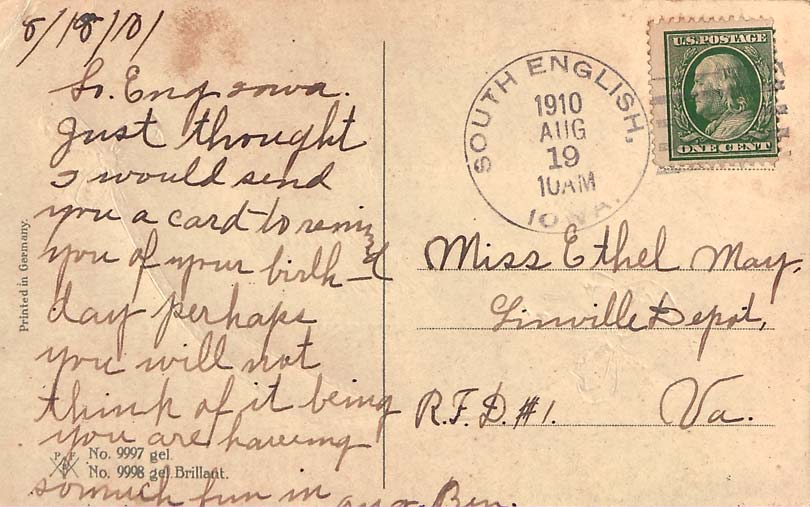 8/18/10/
So. Eng. Iowa.
Just thought
I would send
you a card to remind
you of your birth-
day perhaps
you will not
think of it being
you are haveing
so much fun in
Printed in Germany.
No. 9997 gel.
No. 9998 gel. Brillant.
SOUTH ENGLISH,
1910
AUG
19
10AM
IOWA.
U.S. POSTAGE
ONE CENT
Miss Ethel May,
Linville Depot,
R.F.D. #1. Va.